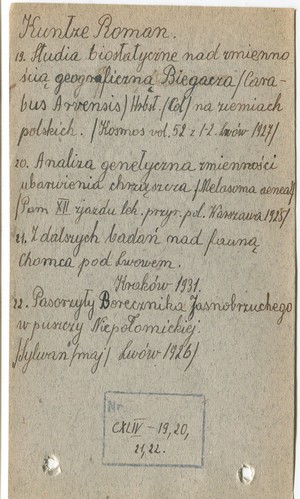 Kuntze Roman.
19. Studia biostatyczne nad zmienno
ścią geograficzną Biegacza /Cara-
bus Arvensis/ Hrbst. /Col/ na ziemiach
polskich. /Kosmos vol. 52 z 1-2. Lwów 1927/
20. Analiza genetyczna zmienności
ubarwienia chrząszcza /Melasoma aenea L/
/Pam XII zjazdu lek. przyr. pol. Warszawa 1925/
21. Z dalszych badań nad fauną
chomca pod Lwowem.
Kraków 1931.
22. Pasorzyty Borecznika Jasnobrzuchego
w puszczy Niepołomickiej.
/Sylwan/ maj/ Lwów 1926/
Nr.
CXLIV - 19, 20,
21, 22.